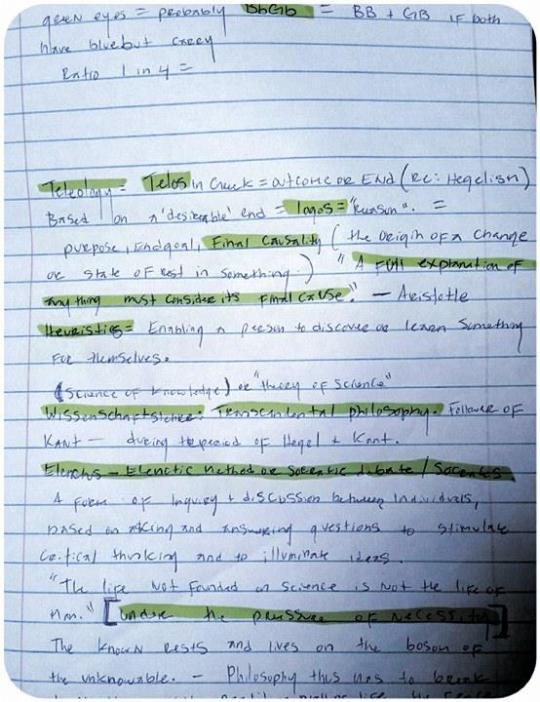 green eyes = probably BbGb = BB + GB if both
have blue but carry
Ratio 1 in 4 =
Teleology = Telos in Greek = outcome or END (Re: Hegelism)
Based on a 'desirable' end = logos = "Reason". =
purpose, Endgoal, Final Causality (the origin of a change
or state of rest in something.) "A Full explanation of
anything must consider its final cause." — Aristotle
Heuristics = Enabling a person to discover or learn something
for themselves.
(Science of knowledge) or "theory of science"
Wissenschaftslehre: Transcendental philosophy. Follower of
Kant — during the period of Hegel + Kant.
Elenchus — Elenctic method or Socratic debate / Socrates
A form of Inquiry + discussion between individuals,
based on asking and answering questions to stimulate
critical thinking and to illuminate ideas.
"The life not founded on science is not the life of
man." [under the pressure of necessity]
The known rests and lives on the bosom of
the unknowable. — Philosophy thus has to break